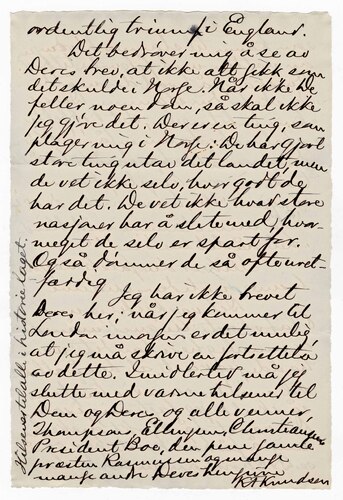 ordentlig triumf i England.
Det bedrøver mig å se av
Deres brev, at ikke alt gikk som
det skulde i Norge. Når ikke De
feller noen dom, så skal ikke
jeg gjøre det. Der er en ting, som
plager mig i Norge: De har gjort
store ting utav det landet, men
de vet ikke selv, hvor godt de
har det. De vet ikke hvad store
nasjoner har å slite med, hvor
meget de selv er spart for.
Også dømmer de så ofte uret-
ferdig
Jeg har ikke brevet
Deres her; når jeg kommer til
London imorgen er det mulig,
at jeg må skrive en fortsettelse
av dette. Imidlertid må jeg
slutte med varme hilsener til
Dem og Deres, og alle venner,
Thompson, Ellingsen, Christianson
President Boe, den pene gamle
presten Rasmussen og mange
mange andre Deres hengivne
K. Knudsen
Hilsener til alle i historielaget.